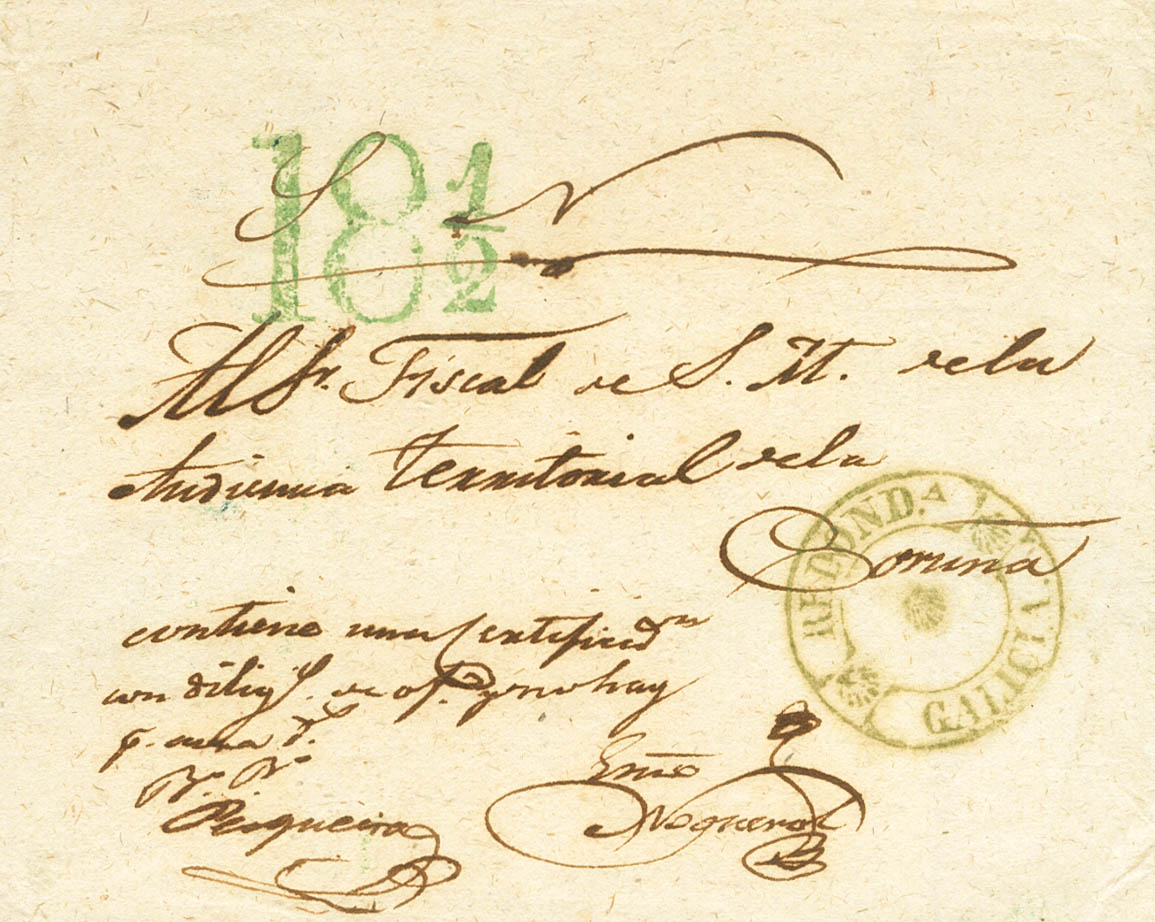 18 1/2
S N
Al Sr. Fiscal de S. M. de la
Audiencia Territorial de la
Coruña
REDOND.A
GALICIA.
contiene una certificon
con dilig.s de of.o y no hay
B.o B.o
Piñqueira
Noguerol